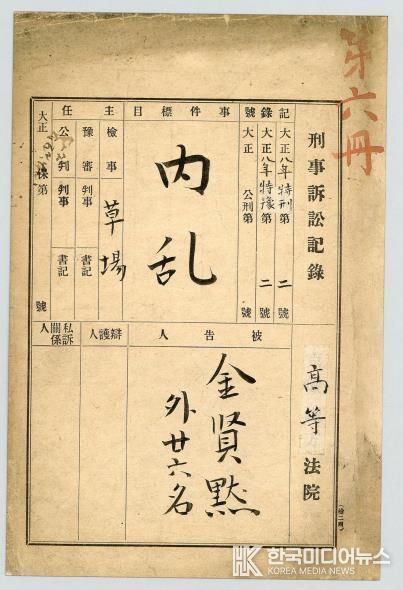 第六冊
刑事訴訟記錄
高等法院
記錄號
大正八年特刑第二號
大正八年特豫第二號
大正 公刑第 號
事件標目
內乱
主任
檢事 草場
豫審判事 書記
公判判事 書記
大正
第 號
被告人
金賢黙
外廿六名
辯護人
私訴關係人
한국미디어뉴스
KOREA MEDIA NEWS